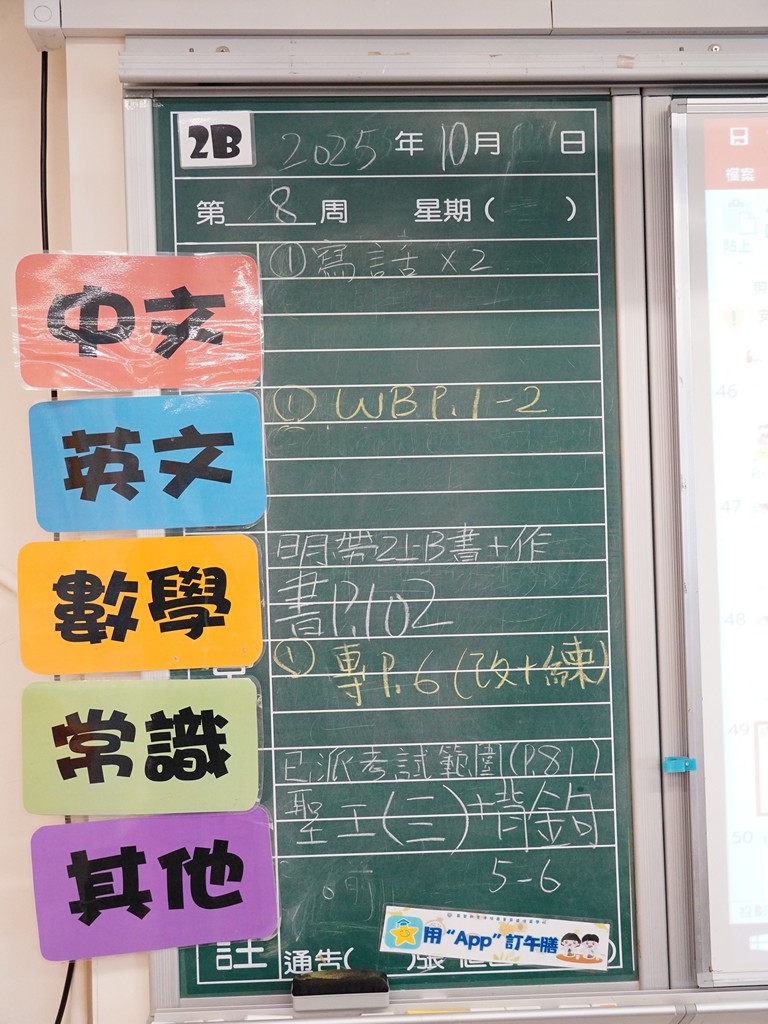 2B 2025年10月 日
第 8 周 星期( )
中文
①寫話×2
英文
①WB P.1-2
數學
明帶2上B書+作
書P.102
① 專P.6(改+練)
常識
已派考試範圍(P.81)
聖工(三)+背金句
其他
5-6
用“App”訂午膳
註 通告( )張
檔案
貼上
46
47
48
49
50